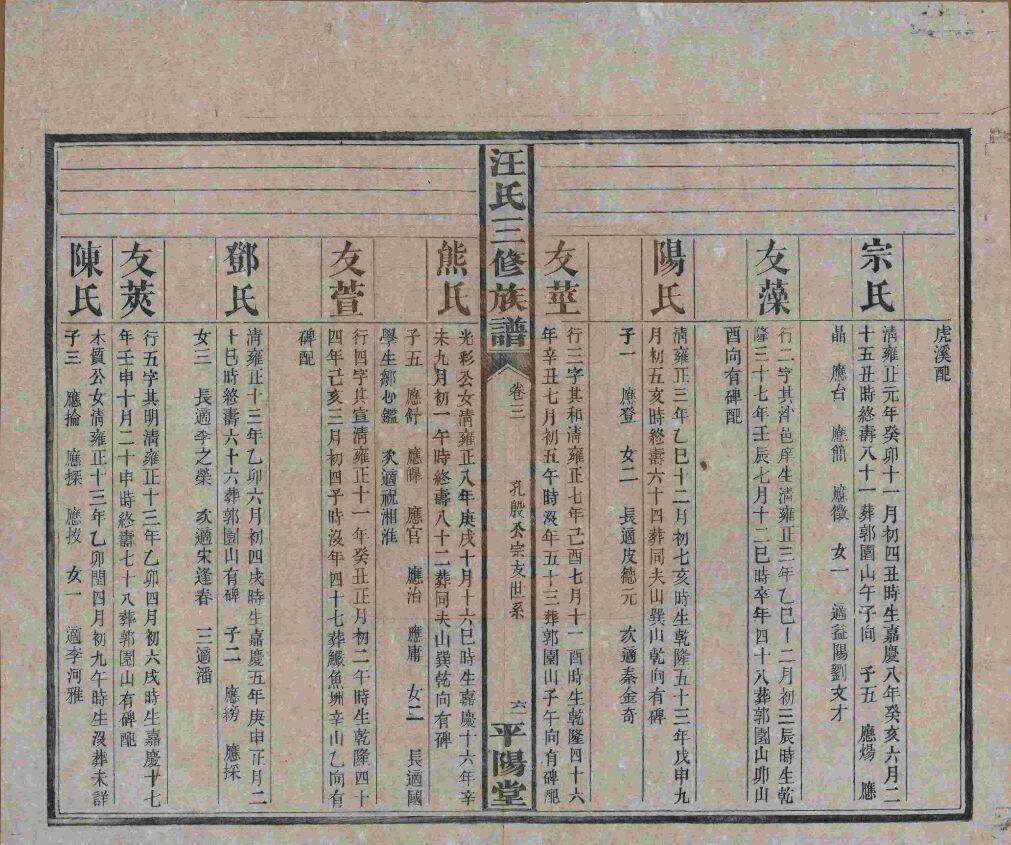 虎溪配
宗氏
清雍正元年癸卯十一月初四丑時生嘉慶八年癸亥六月二
十五丑時終壽八十一葬郭園山午子向　子五　應煬　應
晶　應台　應簡　應徵　女一　適益陽劉文才
友藻
行二字其沙邑庠生清雍正三年乙巳十二月初三辰時生乾
隆三十七年壬辰七月十二巳時卒年四十八葬郭園山卯山
酉向有碑配
陽氏
清雍正三年乙巳十二月初七亥時生乾隆五十三年戊申九
月初五亥時終壽六十四葬同夫山巽山乾向有碑
子一　應登　女二　長適皮德元　次適秦金奇
友莖
行三字其和清雍正七年己酉七月十一酉時生乾隆四十六
年辛丑七月初五午時沒年五十三葬郭園山子午向有碑配
汪氏三修族譜
卷三
孔殷公宗支世系
六一
平陽堂
熊氏
光彩公女清雍正八年庚戌十月十六巳時生嘉慶十六年辛
未九月初一午時終壽八十二葬同夫山巽乾向有碑
子五　應舒　應　應官　應治　應庸　女二　長適國
學生鄒心鑑　次適祝湘淮
友萱
行四字其宣清雍正十一年癸丑正月初二午時生乾隆四十
四年己亥三月初四子時沒年四十七葬鱖魚洲辛山乙向有
碑配
鄧氏
清雍正十三年乙卯六月初四戌時生嘉慶五年庚申正月二
十巳時終壽六十六葬郭園山有碑　子二　應紡　應採
女三　長適李之榮　次適宋逢春　三適潘
友莢
行五字其明清雍正十三年乙卯四月初六戌時生嘉慶十七
年壬申十月二十申時終壽七十八葬郭園山有碑配
陳氏
木質公女清雍正十三年乙卯閏四月初九午時生沒葬未詳
子三　應掄　應探　應按　女一　適李河雅